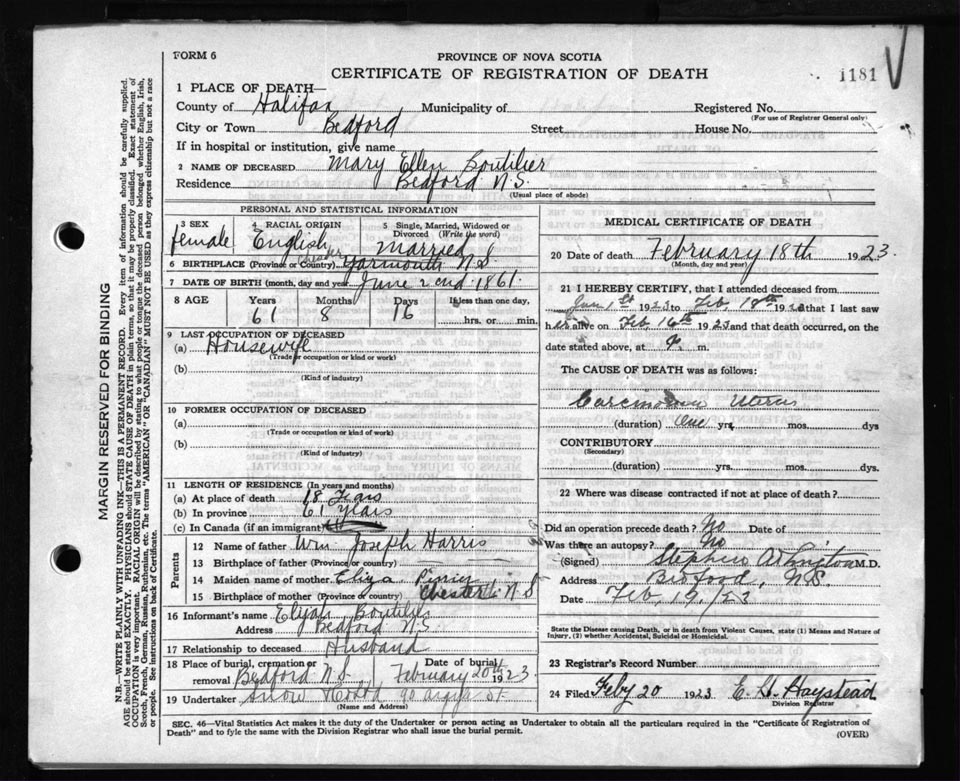 FORM 6
PROVINCE OF NOVA SCOTIA
CERTIFICATE OF REGISTRATION OF DEATH
1181
1 PLACE OF DEATH—
County of Halifax Municipality of Registered No.
(For use of Registrar General only)
City or Town Bedford Street House No.
If in hospital or institution, give name
2 NAME OF DECEASED Mary Ellen Boutilier
Residence Bedford N.S.
(Usual place of abode)
PERSONAL AND STATISTICAL INFORMATION
3 SEX female
4 RACIAL ORIGIN English
5 Single, Married, Widowed or Divorced (Write the word) Married
6 BIRTHPLACE (Province or Country) Chester Yarmouth N.S.
7 DATE OF BIRTH (month, day and year) June 2nd 1861.
8 AGE Years Months Days If less than one day,
61 8 16 hrs. or min.
9 LAST OCCUPATION OF DECEASED
(a) Housewife
(Trade or occupation or kind of work)
(b)
(Kind of industry)
10 FORMER OCCUPATION OF DECEASED
(a)
(Trade or occupation or kind of work)
(b)
(Kind of industry)
11 LENGTH OF RESIDENCE (In years and months)
(a) At place of death 18 Years
(b) In province 61 years
(c) In Canada (if an immigrant)
Parents
12 Name of father Wm Joseph Harris
13 Birthplace of father (Province or country)
14 Maiden name of mother Eliza
15 Birthplace of mother (Province or country) Chester N S
16 Informant's name Elijah Boutilier
Address Bedford N.S.
17 Relationship to deceased Husband
18 Place of burial, cremation or removal Bedford N.S. Date of burial February 20th 1923
19 Undertaker Snow 90 Argyle St
(Name and Address)
MEDICAL CERTIFICATE OF DEATH
20 Date of death February 18th 1923.
(Month, day and year)
21 I HEREBY CERTIFY, that I attended deceased from
Jan 1st 1923 to Feb. 18th 1923 that I last saw
her alive on Feb 16th 1923 and that death occurred, on the
date stated above, at m.
The CAUSE OF DEATH was as follows:
Carcinoma Uterus
(duration) One yrs. mos. dys
CONTRIBUTORY
(Secondary)
(duration) yrs. mos. dys.
22 Where was disease contracted if not at place of death?
Did an operation precede death? No Date of
Was there an autopsy? No
(Signed) M.D.
Address Bedford, N.S.
Date Feb, 19/23
State the Disease causing Death, or in death from Violent Causes, state (1) Means and Nature of
Injury, (2) whether Accidental, Suicidal or Homicidal.
23 Registrar's Record Number
24 Filed Feby 20 1923 E. H. Haystead
Division Registrar
SEC. 46—Vital Statistics Act makes it the duty of the Undertaker or person acting as Undertaker to obtain all the particulars required in the "Certificate of Registration of
Death" and to fyle the same with the Division Registrar who shall issue the burial permit. (OVER)
MARGIN RESERVED FOR BINDING
N.B.—WRITE PLAINLY WITH UNFADING INK—THIS IS A PERMANENT RECORD. Every item of information should be carefully supplied.
AGE should be stated EXACTLY. PHYSICIANS should STATE CAUSE OF DEATH in plain terms, so that it may be properly classified. Exact statement of
OCCUPATION is very important. RACIAL ORIGIN will be described by stating to what people or tongue the deceased person belonged whether English, Irish,
Scotch, French, German, Russian, Ruthenian, etc. The terms "AMERICAN" OR "CANADIAN" MUST NOT BE USED as they express citizenship but not a race
or people. See instructions on back of Certificate.